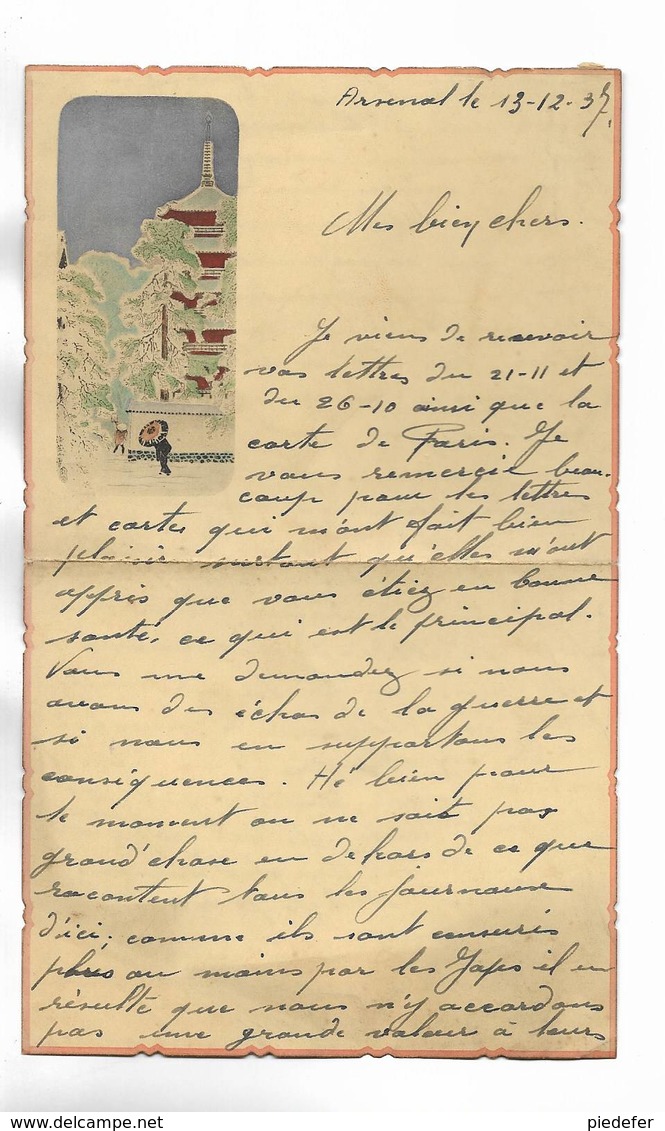 Arsenal le 13-12-37.
Mes bien chers.
Je viens de recevoir
vos lettres du 21-11 et
du 26-10 ainsi que la
carte de Paris. Je
vous remercie beau-
coup pour les lettres
et cartes qui m'ont fait bien
plaisir surtout qu'elles m'ont
appris que vous étiez en bonne
santé, ce qui est le principal.
Vous me demandez si nous
avons des échos de la guerre et
si nous en supportons les
conséquences. Hé bien pour
le moment on ne sait pas
grand'chose en dehors de ce que
racontent tous les journaux
d'ici; comme ils sont censurés
plus ou moins par les Japs il en
résulte que nous n'y accordons
pas une grande valeur à leurs
www.delcampe.net
piedefer